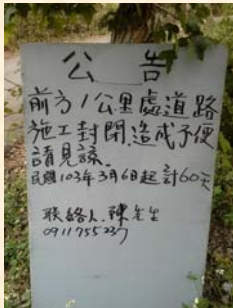 公告
前方1公里處道路
施工封閉,造成不便
請見諒.
民國103年3月6日起計60天
聯絡人.陳先生
0911755237